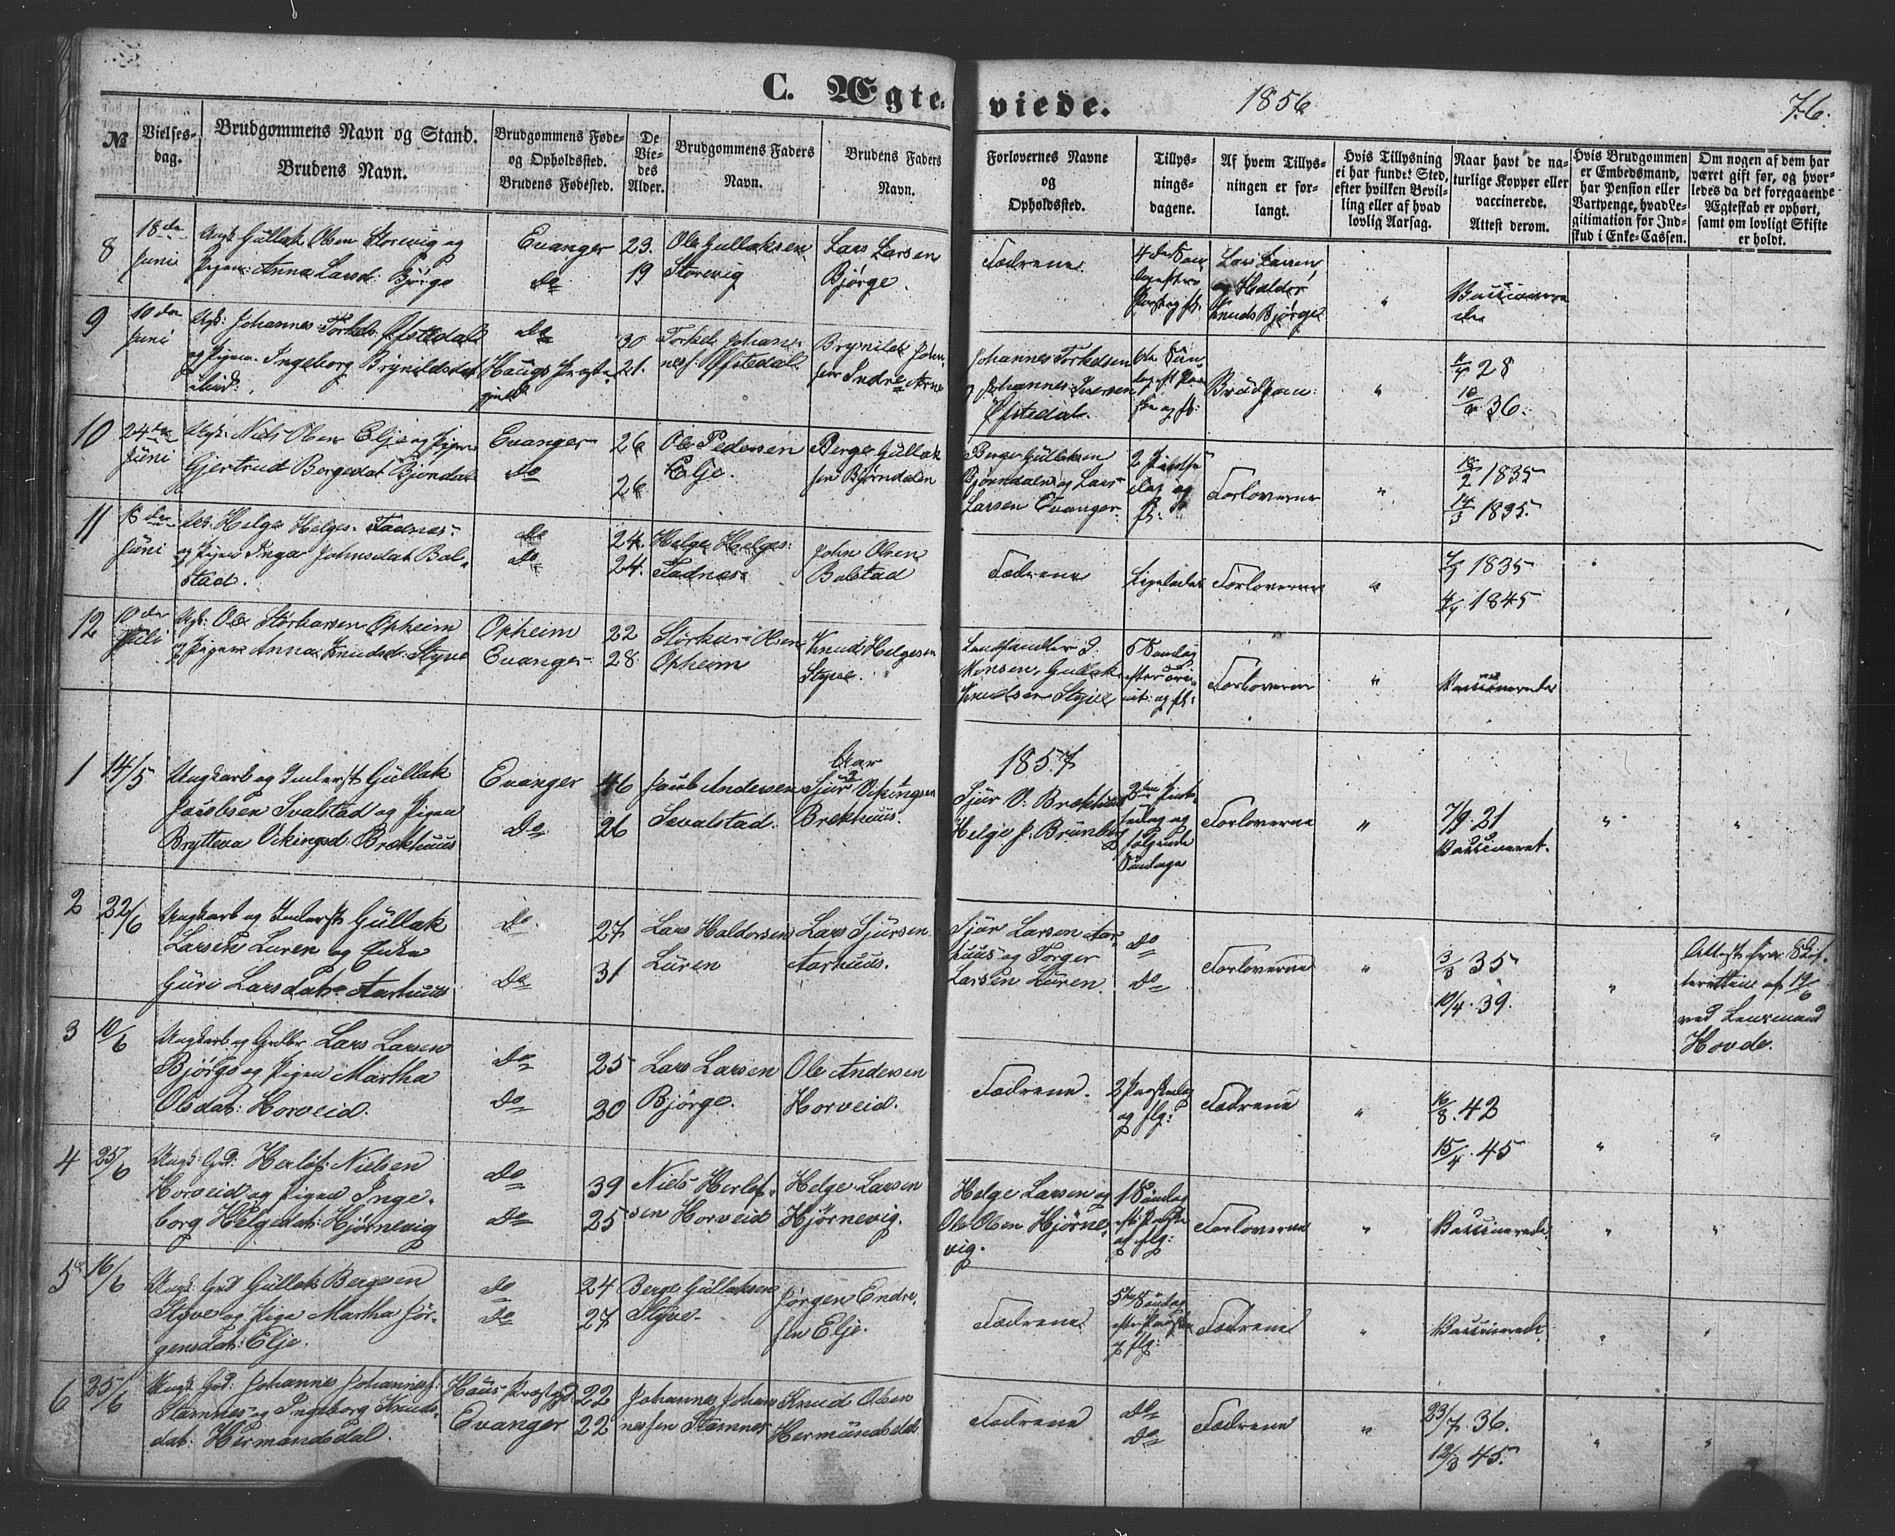 C. Ægteviede. 1856 76.
№
Vielsesdag.
Brudgommens Navn og Stand.
Brudens Navn.
Brudgommens Føde- og Opholdssted.
Brudens Fødested.
De Viedes Alder.
Brudgommens Faders Navn.
Brudens Faders Navn.
Forlovernes Navne og Opholdssted.
Tillysningsdagene.
Af hvem Tillysningen er forlangt.
Hvis Tillysning ei har fundet Sted, efter hvilken Bevilling eller af hvad lovlig Aarsag.
Naar havt de naturlige Kopper eller vaccinerede. Attest derom.
Hvis Brudgommen er Embedsmand, har Pension eller Vartpenge, hvad Legitimation for Indskud i Enke-Cassen.
Om nogen af dem har været gift før, og hvorledes da det foregaaende Ægteskab er ophørt, samt om lovligt Skifte er holdt.
8 18de Juni
Gullak Olsen Storevig og
Pigen Anna Larsd: Bjørge
Evanger
do
23.
19
Ole Gullaksen
Storevig
Lars Larsen
Bjørge.
Fædrene
Lars Larsen
og Haldor
Knuds Bjørge
"
Vaccinerede
9 10de Juni
Johannes Torkels: Øfstedal
og Pigen Ingeborg Brynildsdat
do
Haugs Præstegjeld
30
21.
Torkel Johannes: Øfstedal
Brynild Johnsen Indre Arne
Johannes Torkelsen
Johannes Iversen
Øfstedal.
Brudgom:
"
28
36.
10 24de Juni
Niels Olsen Elje og Pigen
Gjertrud Bergesdat Bjøndal
Evanger
do
26
26
Ole Pedersen
Elje.
Berge Gullaksen Bjørndalen
Berge Gullaksen
Bjørndalen og Lars
Larsen Evanger
Forloverne
"
1835
1835.
11 Juni
Helge Helges: Fadnæs
og Pigen Inger Johnsdat Bolstad.
do
do
24.
24.
Helge Helges:
Fadnæs
John Olsen
Bolstad
Fædrene
Ligeledes
Forloverne
"
1835
1845
12 10de Juli
Ole Størkersen Opheim
og Pigen Anna Knudsd: Styve
Opheim
Evanger
22
28.
Størker Olsen
Opheim
Knud Helgesen
Styve.
Gullak
Knudsen Styve
Forloverne
"
Vaccinerede
Aar 1857
1 14/5
Ungkarl og Inderst Gullak
Jacobsen Svalstad og Pigen
Bryteva Vikingsd: Brekhuus
Evanger
Do
46
26
Jacob Andersen
Sevalstad.
Sjur Vikingsen
Brekhuus.
Sjur V. Brekhuus
Helge J. Brunborg
2den Pintsedag og
følgende
Søndage
Forloverne
"
7/9. 21
Vaccineret.
"
"
2 22/6
Ungkarl og Inderst Gullak
Larsen Luren og Enke
Guri Larsdatr Aarhuus
do
Do
27
31
Lars Haldorsen
Luren
Lars Sjursen
Aarhuus.
Sjur Larsen Aarhuus og Torger
Larsen Luren.
do
do
Forloverne
"
3/3 35
10/4. 39.
"
Attest fra Skifteretten af 19/6
ved Lensmand
Hovde.
3 10/6
Ungkarl og Grdbr Lars Larsen
Bjørge og Pigen Martha
Olsdat: Horveid.
do
do
25
20
Lars Larsen
Bjørge.
Ole Andersen
Horveid.
Fædrene.
og flg:
Fædrene
"
16/8. 42
15/4. 45
"
"
4 25/6
Ungk: Grd: Herlof Nielsen
Horveid og Pigen Ingeborg Helgedat: Hjørnevig
do
do
39
25
Niels Herlofsen Horveid
Helge Larsen
Hjørnevig.
Helge Larsen og
Ole Olsen Hjørnevig.
og flg:
Forloverne
"
Vaccinerede
"
"
5 16/6
Ungk: Grd Gullak Bergesen
Styve og Pige Martha Jørgensdat: Elje.
do
do
24
27
Berge Gullaksen
Styve.
Jørgen Endresen Elje.
Fædrene
5te Søndag
efter Paaske
og flg:
Fædrene
"
Vaccinerede
"
"
6 25/6
Ungk: Grd: Johannes Johannes:
Stamnes og Ingeborg Knudsdat: Hermandsdal.
Haus Præstegj:
Evanger
22
22
Johannes Johannessen Stamnes
Knud Olsen
Hermundsdal
Fædrene
do
do
Fædrene
"
23/7. 36.
12/8 45.
"
"